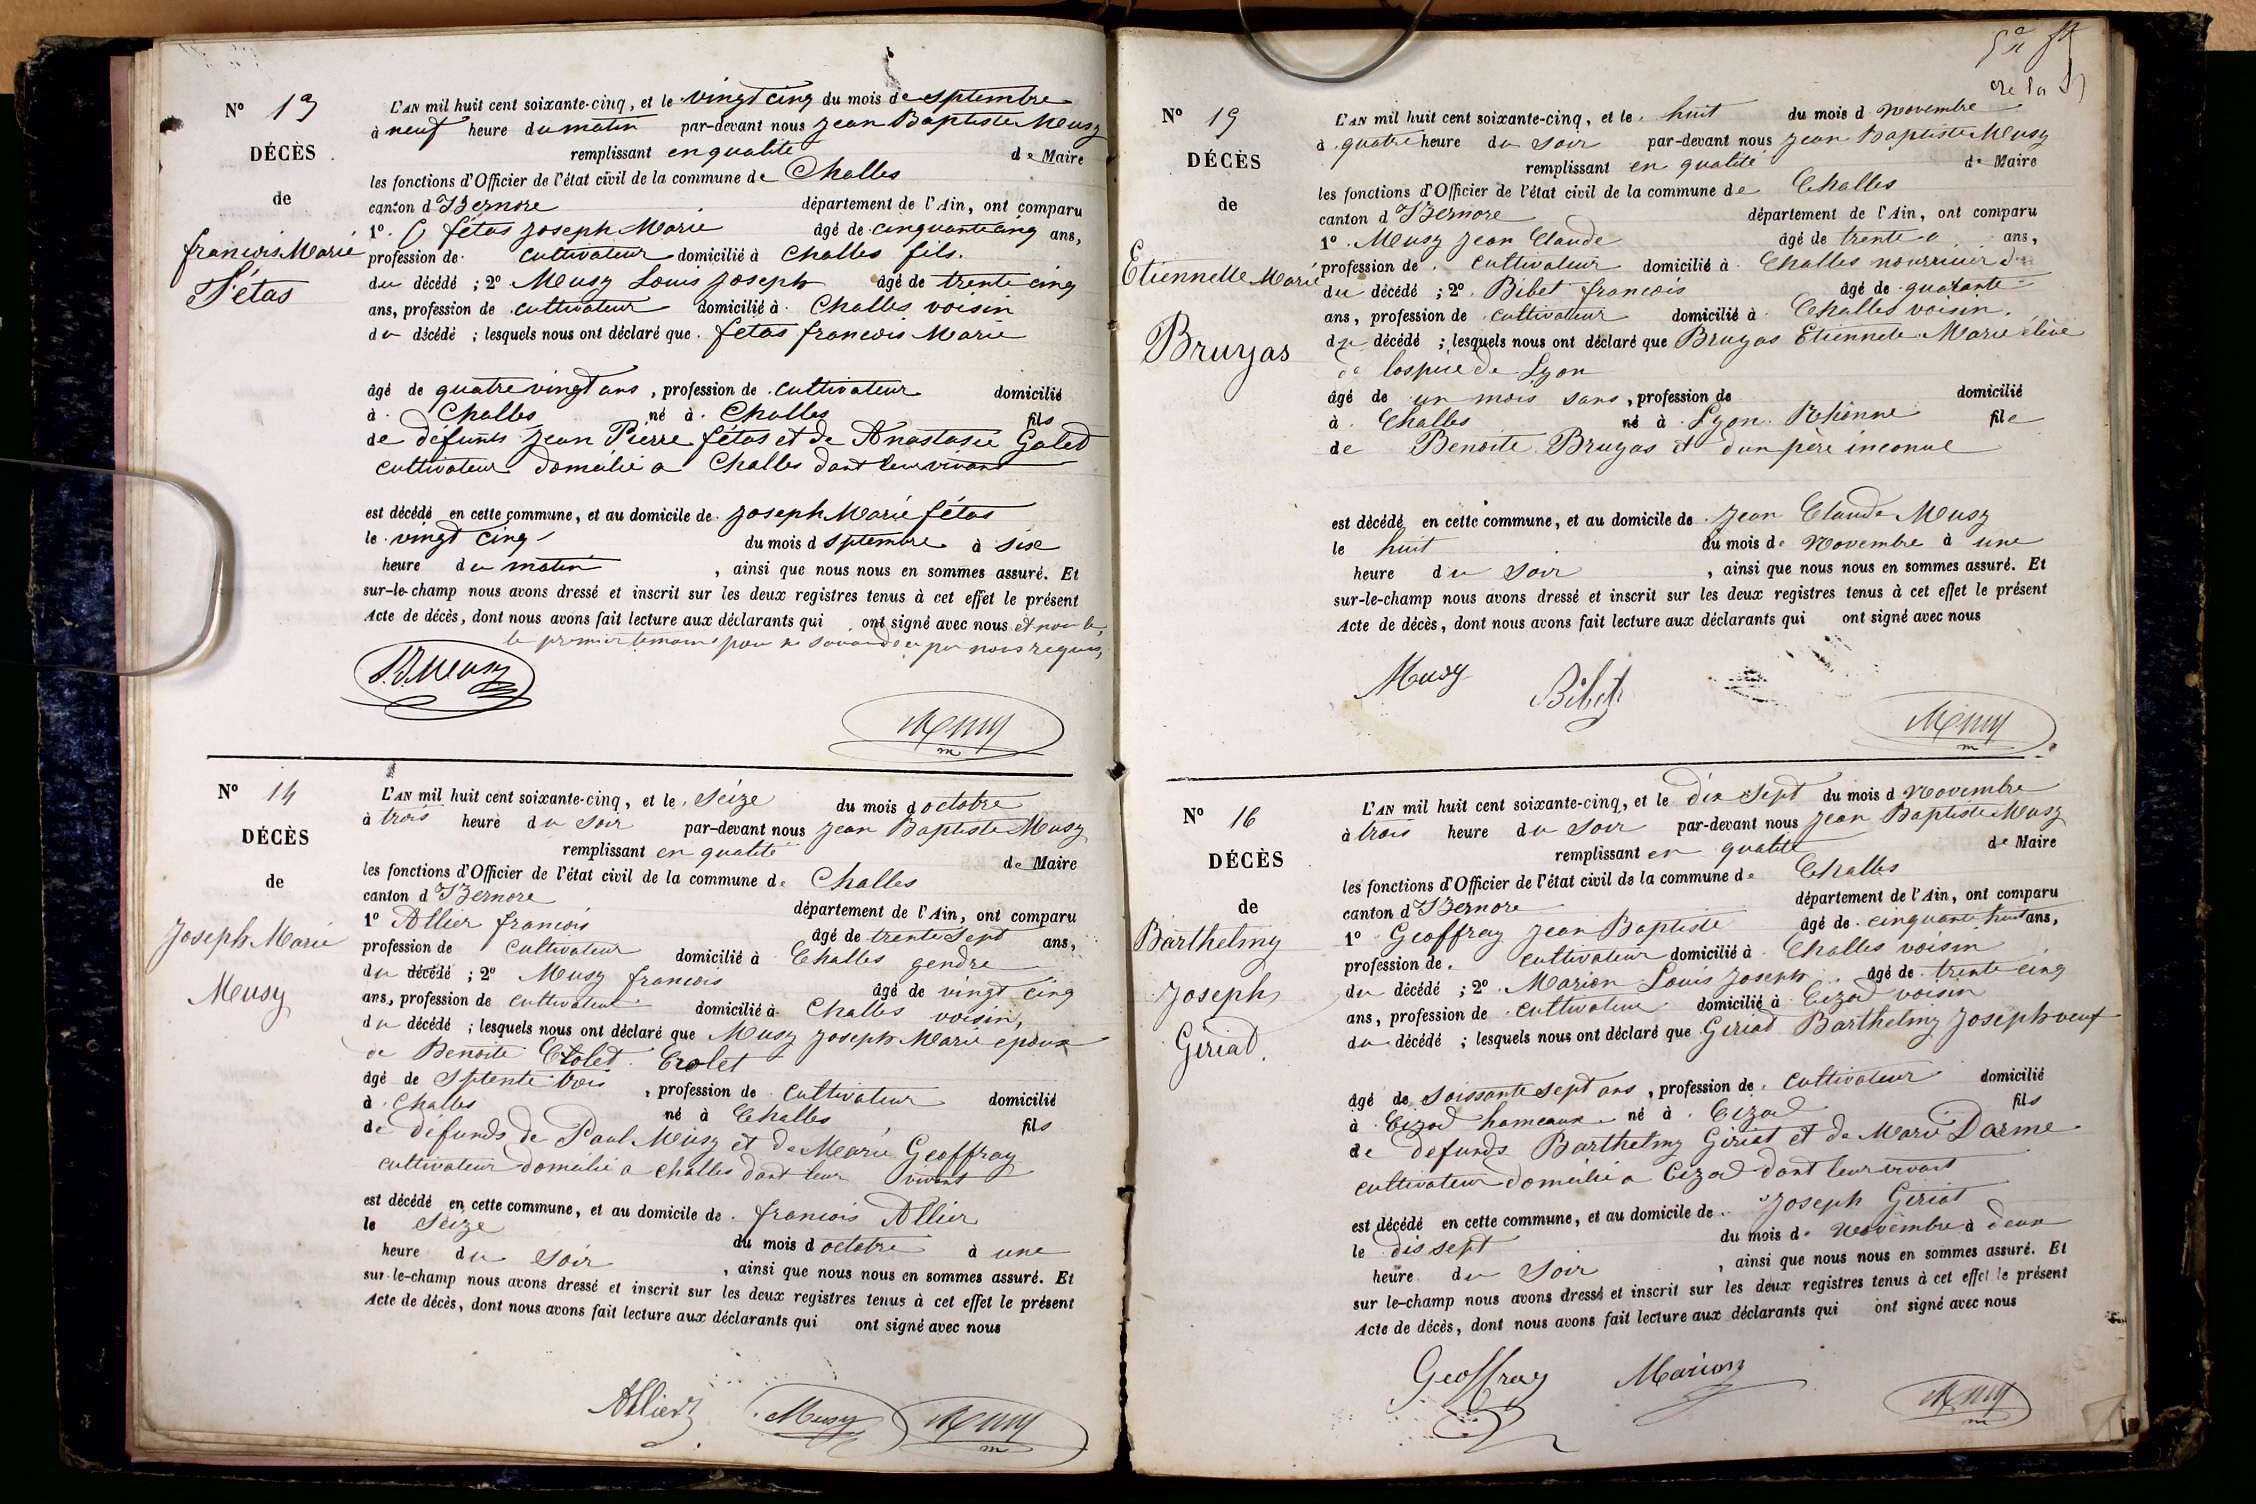 Nº 13
DÉCÈS
de
francois Marie
Fétas
L'AN mil huit cent soixante-cinq, et le vingt cinq du mois de Septembre
à neuf heure du matin par-devant nous Jean Baptiste Musy
remplissant en qualité de Maire
les fonctions d'Officier de l'état civil de la commune de Challes
canton d'Izernore département de l'Ain, ont comparu
1º fétas Joseph Marie âgé de cinquante cinq ans,
profession de cultivateur domicilié à Challes fils
du décédé ; 2º Musy Louis Joseph âgé de trente cinq
ans, profession de cultivateur domicilié à Challes voisin
du décédé ; lesquels nous ont déclaré que fetas francois Marie
âgé de quatre vingt ans, profession de cultivateur domicilié
à Challes né à Challes fils
de défunts Jean Pierre fétas et de Anastasie Galet
cultivateur domcilié a Challes dant leur vivant
est décédé en cette commune, et au domicile de Joseph Marie fétas
le vingt cinq du mois d Septembre à six
heure du matin , ainsi que nous nous en sommes assuré. Et
sur-le-champ nous avons dressé et inscrit sur les deux registres tenus à cet effet le présent
Acte de décès, dont nous avons fait lecture aux déclarants qui ont signé avec nous et non le,
le premier temoins pour ne savoir de ce par nous requis,
J.B. Musy
Musy
m
Nº 14
DÉCÈS
de
Joseph Marie
Musy
L'AN mil huit cent soixante-cinq, et le Seize du mois d octobre
à trois heure du soir par-devant nous Jean Baptiste Musy
remplissant en qualité de Maire
les fonctions d'Officier de l'état civil de la commune de Challes
canton d'Izernore département de l'Ain, ont comparu
1º Allier francois âgé de trente Sept ans,
profession de cultivateur domicilié à Challes gendre
du décédé ; 2º Musy francois âgé de vingt cinq
ans, profession de cultivateur domicilié à Challes voisin,
du décédé ; lesquels nous ont déclaré que Musy Joseph Marie epoux
de Benoite Crolet
âgé de Septente trois , profession de cultivateur domicilié
à Challes né à Challes fils
de défunds de Paul Musy et de Marie Geoffray
cultivateur domcilié a challes dant leur vivant
est décédé en cette commune, et au domicile de francois Allier
le Seize du mois d octobre à une
heure du soir , ainsi que nous nous en sommes assuré. Et
sur-le-champ nous avons dressé et inscrit sur les deux registres tenus à cet effet le présent
Acte de décès, dont nous avons fait lecture aux déclarants qui ont signé avec nous
Allier Musy Musy
m
Nº 19
DÉCÈS
de
Etiennette Marie
Bruyas
L'AN mil huit cent soixante-cinq, et le huit du mois d novembre
à quatre heure du soir par-devant nous Jean Baptiste Musy
remplissant en qualité de Maire
les fonctions d'Officier de l'état civil de la commune de Challes
canton d'Izernore département de l'Ain, ont comparu
1º Musy Jean Claude âgé de trente ans,
profession de cultivateur domicilié à Challes nourricier de
du décédé ; 2º Bibet francois âgé de quarante
ans, profession de cultivateur domicilié à Challes voisin.
du décédé ; lesquels nous ont déclaré que Bruyas Etiennete Marie élève
de lospice de Lyon
âgé de un mois sans, profession de domicilié
à Challes né à Lyon Rhônne file
de Benoite Bruyas et dun père inconue
est décédé en cette commune, et au domicile de Jean Claude Musy
le huit du mois de Novembre à une
heure du soir , ainsi que nous nous en sommes assuré. Et
sur-le-champ nous avons dressé et inscrit sur les deux registres tenus à cet effet le présent
Acte de décès, dont nous avons fait lecture aux déclarants qui ont signé avec nous
Musy Bibet
Musy
m
Nº 16
DÉCÈS
de
Barthelmy
Joseph
Geriad.
L'AN mil huit cent soixante-cinq, et le dix Sept du mois d Novembre
à trois heure du soir par-devant nous Jean Baptiste Musy
remplissant en qualité de Maire
les fonctions d'Officier de l'état civil de la commune de Challes
canton d'Izernore département de l'Ain, ont comparu
1º Geoffray Jean Baptiste âgé de cinquante huit ans,
profession de cultivateur domicilié à Challes voisin
du décédé ; 2º Marion Louis Joseph âgé de trente cinq
ans, profession de cultivateur domicilié à Cizod voisin
du décédé ; lesquels nous ont déclaré que Geriad Barthelmy Joseph veuf
âgé de soissante sept ans, profession de cultivateur domicilié
à Cizod hameaux né à Cizod fils
de defunds Barthelmy Geriat et de Marie Darme
cultivateur domcilié a Cizod dant leur vivant
est décédé en cette commune, et au domicile de Joseph Geriat
le dis sept du mois de Novembre à deux
heure du soir , ainsi que nous nous en sommes assuré. Et
sur le-champ nous avons dressé et inscrit sur les deux registres tenus à cet effet le présent
Acte de décès, dont nous avons fait lecture aux déclarants qui ont signé avec nous
Geoffray Marion
Musy
m